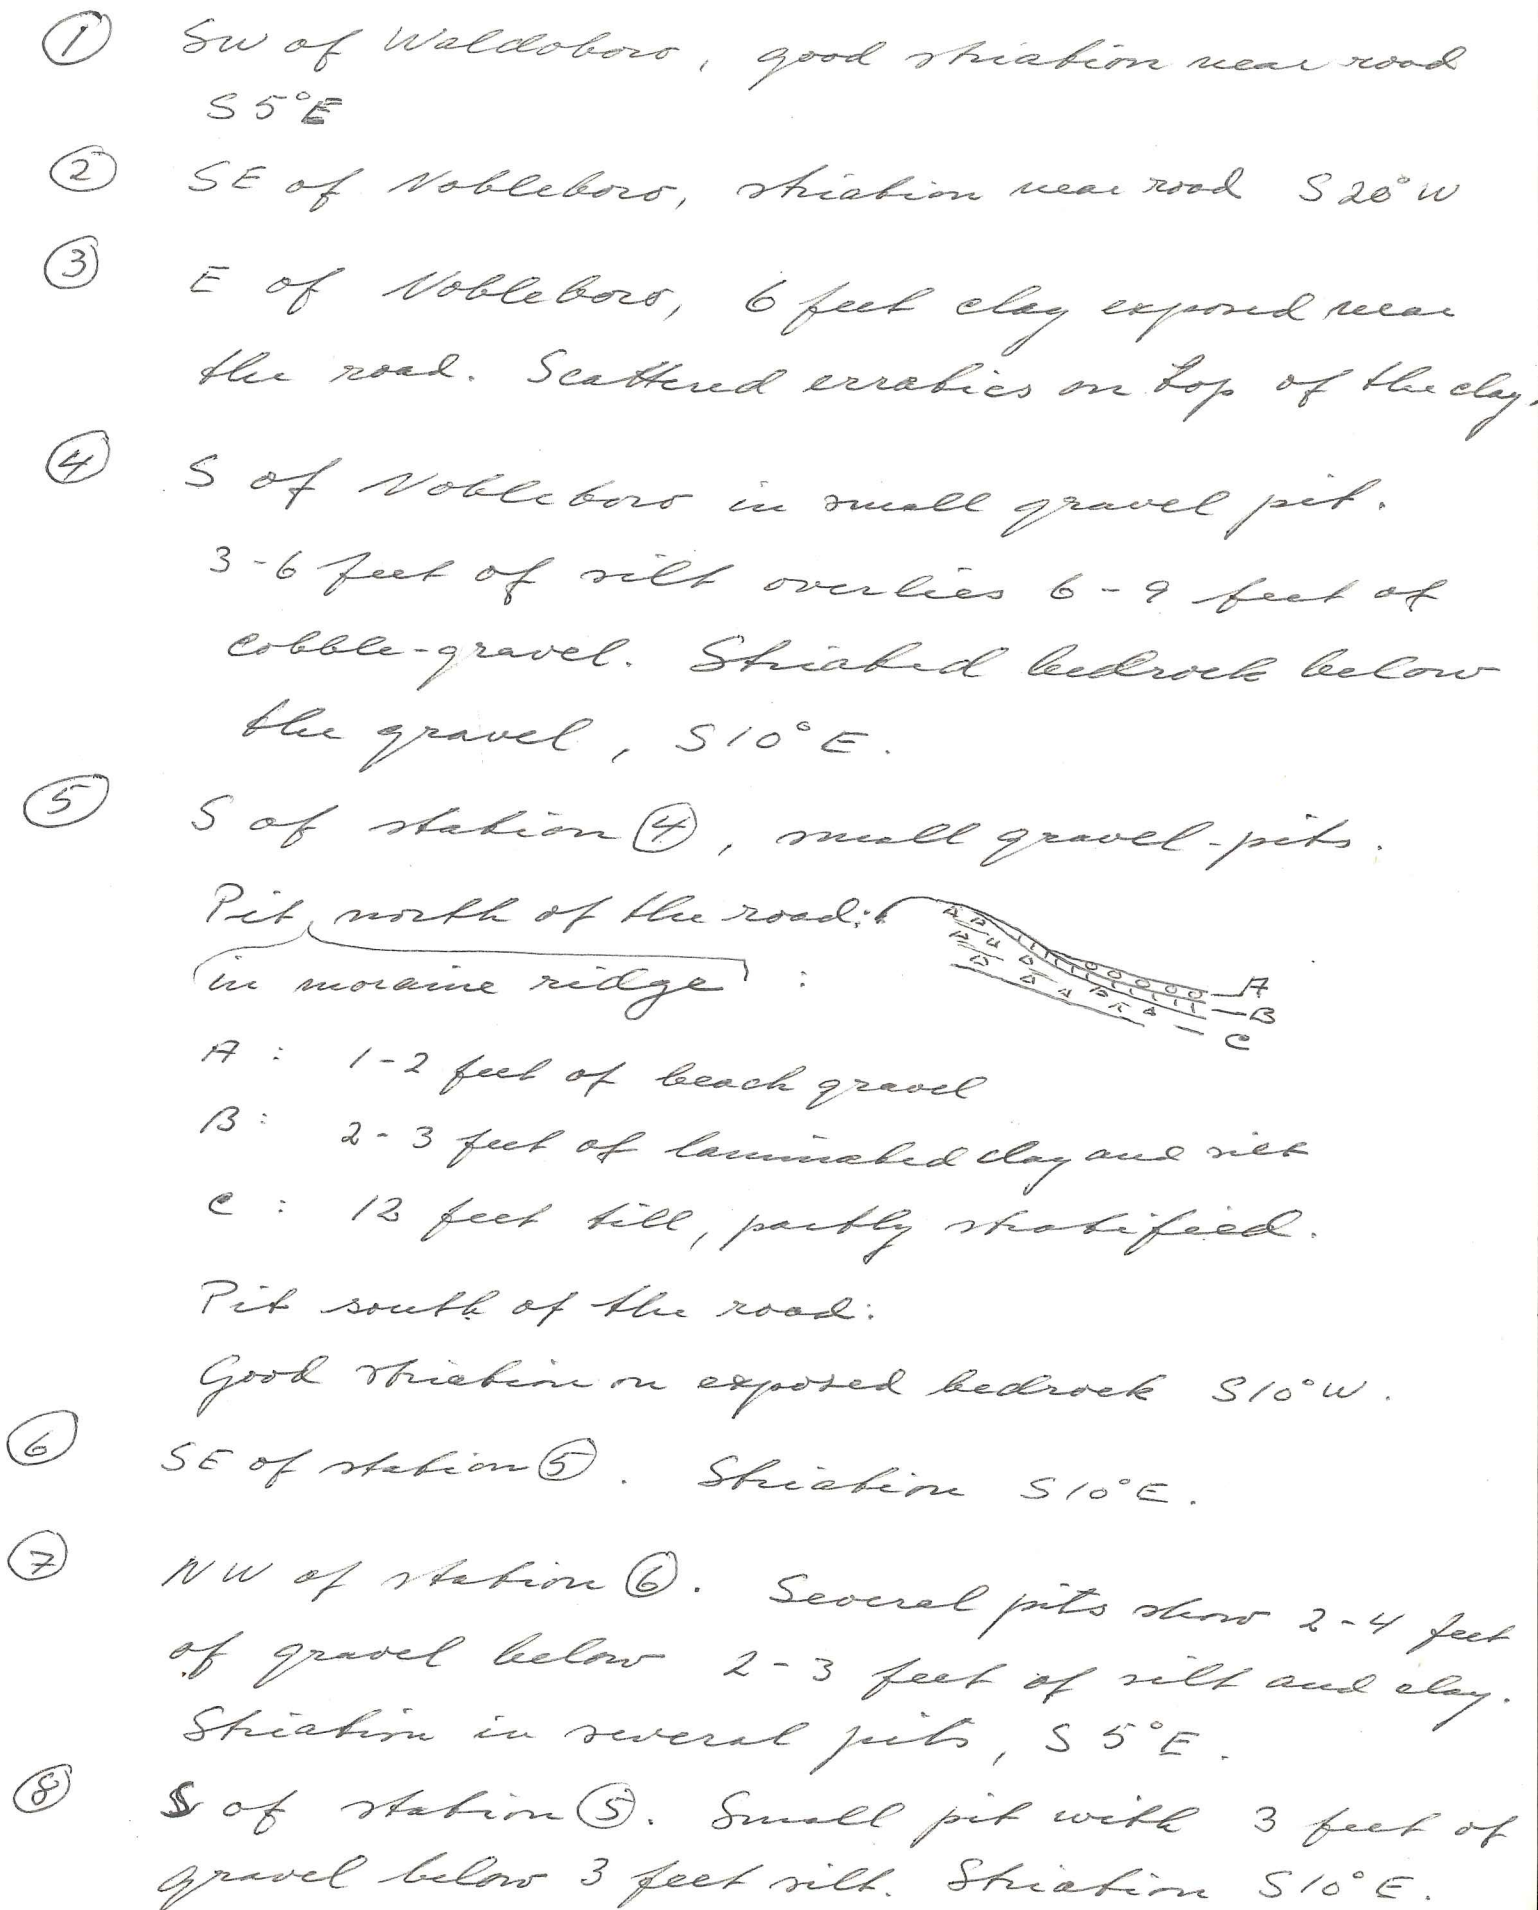 ① SW of Waldoboro, good striation near road
S 5° E
② SE of Nobleboro, striation near road S 20° W
③ E of Nobleboro, 6 feet clay exposed near
the road. Scattered erratics on top of the clay.
④ S of Nobleboro in small gravel pit.
3-6 feet of silt overlies 6-9 feet of
cobble-gravel. Striated bedrock below
the gravel, S 10° E.
⑤ S of station ④, small gravel-pits.
Pit north of the road:
in moraine ridge :
A
B
C
A : 1-2 feet of beach gravel
B : 2-3 feet of laminated clay and silt
C : 12 feet till, partly stratified.
Pit south of the road:
Good striation on exposed bedrock S 10° W.
⑥ SE of station ⑤. Striation S 10° E.
⑦ NW of station ⑥. Several pits show 2-4 feet
of gravel below 2-3 feet of silt and clay.
Striation in several pits, S 5° E.
⑧ S of station ⑤. Small pit with 3 feet of
gravel below 3 feet silt. Striation S 10° E.